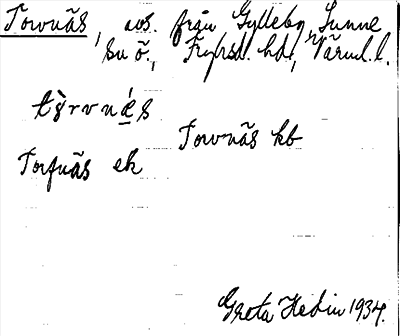 Torvnäs, avs. från Gylleby, Sunne
sn ö., Fryksd. hd, Värml. l.
tỳrvnés
Torvnäs kb
Torfnäs ek
Greta Hedin 1934.